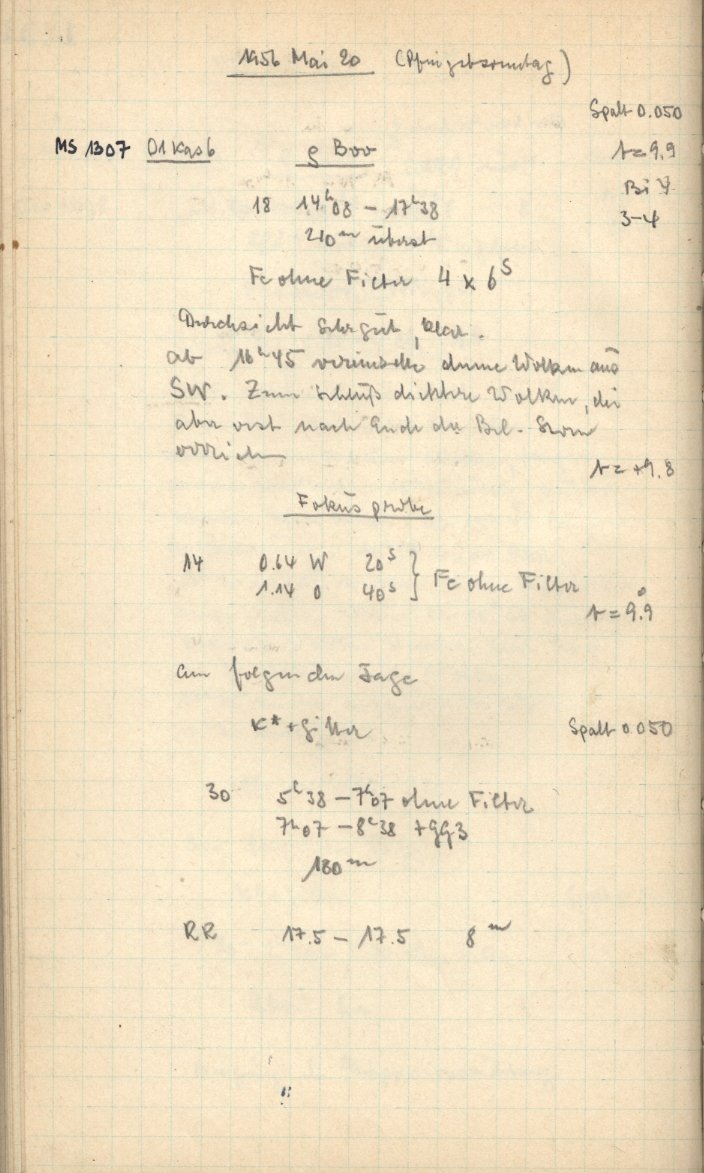 1956 Mai 20 (Pfingstsonntag)
Spalt 0.050
MS 1307 01 Kas 6 ρ Boo t=9.9
Bi 4
3-4
18 14ʰ08 – 17ʰ38
210ᵐ überst
Fe ohne Filter 4 x 6ˢ
Durchsicht sehr gut, klar.
ab 16ʰ45 vereinzelte dünne Wolken aus
SW. Zum Schluß dichtere Wolken, die
aber erst nach Ende der Bel.
t=+9.8
Fokusprobe
14 0.64 W 20ˢ
1.14 O 40ˢ } Fe ohne Filter
t=9.9
am folgenden Tage
K*+Gitter Spalt 0.050
30 5ʰ38 – 7ʰ07 ohne Filter
7ʰ07 – 8ʰ38 + GG3
180ᵐ
RR 17.5 – 17.5 8ᵐ